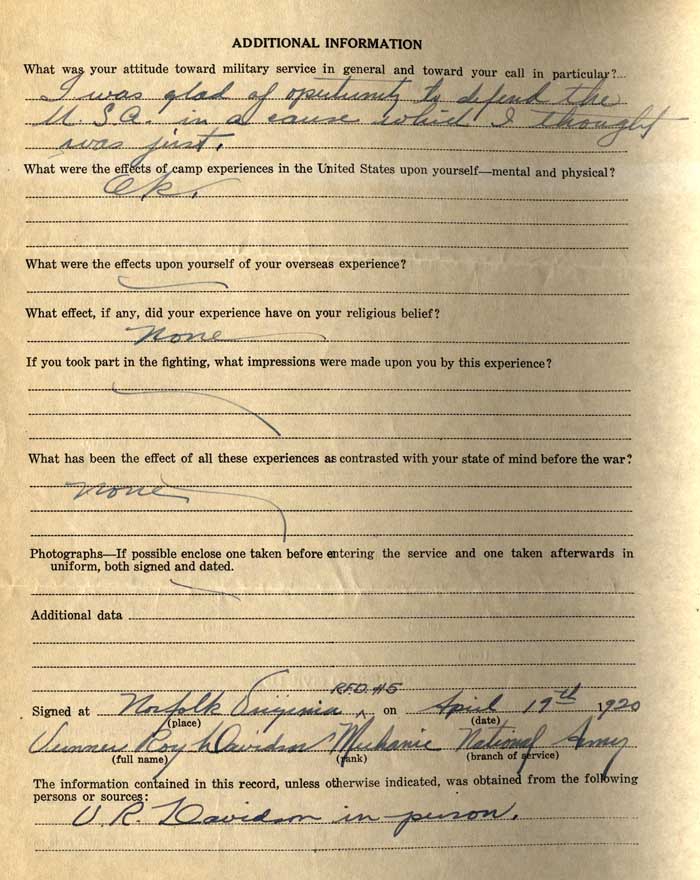 ADDITIONAL INFORMATION
What was your attitude toward military service in general and toward your call in particular?
I was glad of oportunity to defend the
U.S.A. in a cause which I thought
was just.
What were the effects of camp experiences in the United States upon yourself—mental and physical?
Ok.
What were the effects upon yourself of your overseas experience?
What effect, if any, did your experience have on your religious belief?
None
If you took part in the fighting, what impressions were made upon you by this experience?
What has been the effect of all these experiences as contrasted with your state of mind before the war?
None
Photographs—If possible enclose one taken before entering the service and one taken afterwards in
uniform, both signed and dated.
Additional data
R.F.D. #5
Signed at Norfolk Virginia ^ on April 19th 1920
(place) (date)
Roy Davidson Mechanic National Army
(full name) (rank) (branch of service)
The information contained in this record, unless otherwise indicated, was obtained from the following
persons or sources:
V. R. Davidson in person.